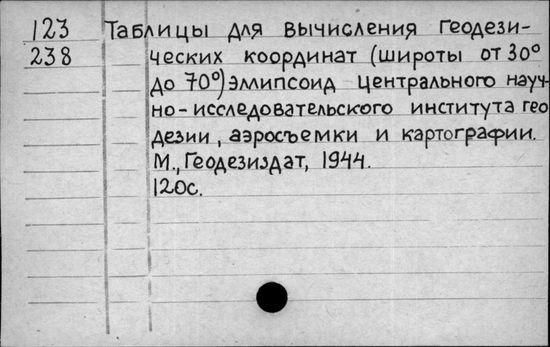 123 Таблицы для вычисления геодези-
238 ческих координат (широты от 30°
до 70°) эллипсоид центрального науч-
но-исследовательского института гео
дезии, аэросъемки и картографии.
М., Геодезиздат, 1944.
120с.